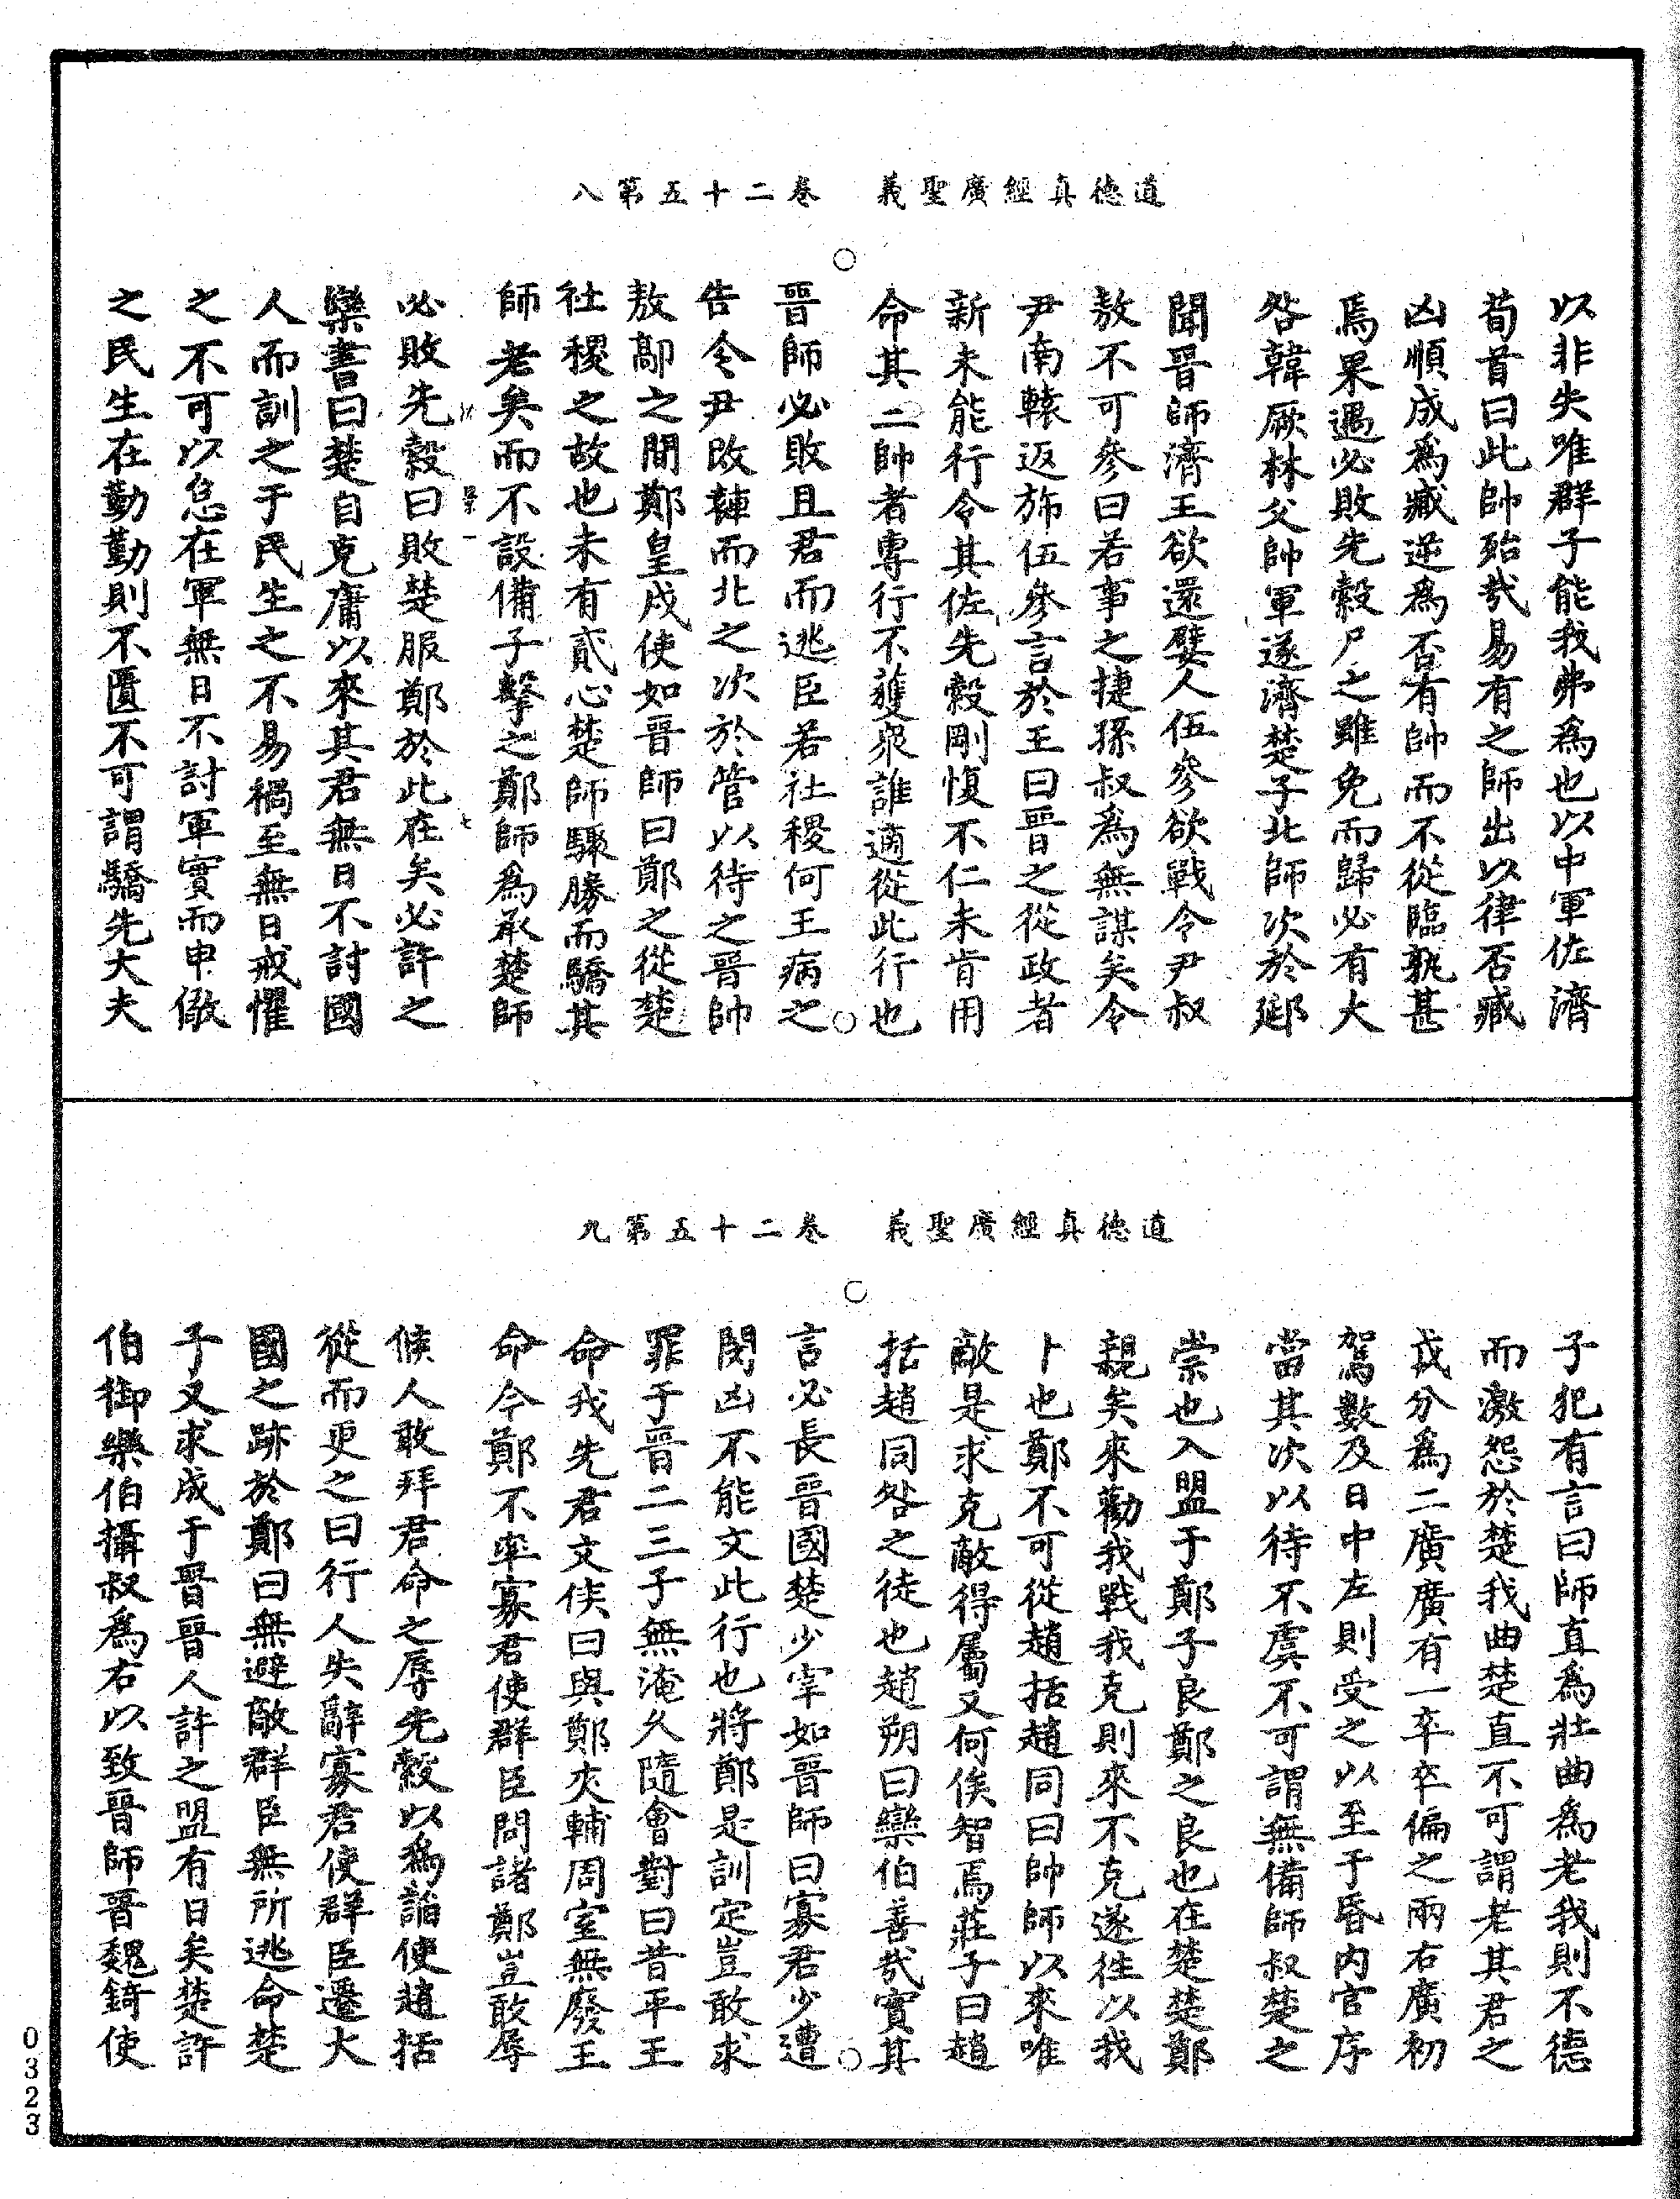 道德真經廣聖義　卷二十五第八
以非失唯群子能我弗為也以中軍佐濟
荀首曰此帥殆哉易有之師出以律否臧
凶順成為臧逆為否有帥而不從臨孰甚
焉果遇必敗先縠尸之雖免而歸必有大
咎韓厥林父帥軍遂濟楚子北師次於郔
聞晉師濟王欲還嬖人伍參欲戰令尹叔
敖不可參曰若事之捷孫叔為無謀矣令
尹南轅返斾伍參言於王曰晉之從政者
新未能行令其佐先縠剛愎不仁未肯用
命其二帥者專行不獲眾誰適從此行也
晉師必敗且君而逃臣若社稷何王病之
告令尹改轅而北之次於管以待之晉帥
敖鄗之間鄭皇戌使如晉師曰鄭之從楚
社稷之故也未有貳心楚師驟勝而驕其
師老矣而不設備子擊之鄭師為承楚師
必敗先縠曰敗楚服鄭於此在矣必許之
欒書曰楚自克庸以來其君無日不討國
人而訓之于民生之不易禍至無日戒懼
之不可以怠在軍無日不討軍實而申儆
之民生在勤勤則不匱不可謂驕先大夫
道德真經廣聖義　卷二十五第九
子犯有言曰師直為壯曲為老我則不德
而激怨於楚我曲楚直不可謂老其君之
戎分為二廣廣有一卒卒偏之兩右廣初
駕數及日中左則受之以至于昏內官序
當其次以待不虞不可謂無備師叔楚之
崇也入盟于鄭子良鄭之良也在楚楚鄭
親矣來勸我戰我克則來不克遂往以我
卜也鄭不可從趙括趙同曰帥師以來唯
敵是求克敵得屬又何俟智焉莊子曰趙
括趙同咎之徒也趙朔曰欒伯善哉實其
言必長晉國楚少宰如晉師曰寡君少遭
閔凶不能文此行也將鄭是訓定豈敢求
罪于晉二三子無淹久隨會對曰昔平王
命我先君文侯曰與鄭夾輔周室無廢王
命今鄭不率寡君使群臣問諸鄭豈敢辱
候人敢拜君命之辱先縠以為諂使趙括
從而更之曰行人失辭寡君使群臣遷大
國之跡於鄭曰無避敵群臣無所逃命楚
子又求成于晉晉人許之盟有日矣楚許
伯御樂伯攝叔為右以致晉師晉魏錡使
0323